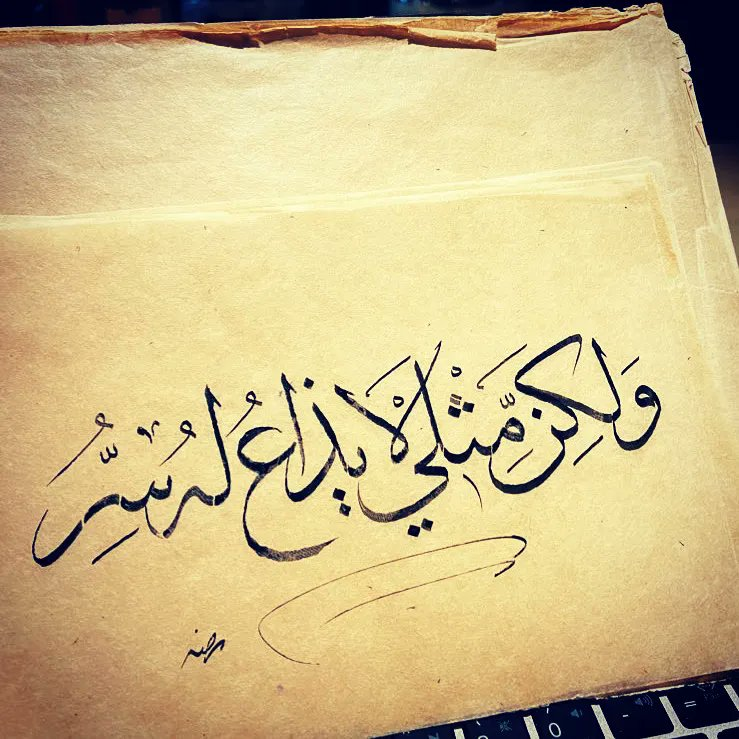 وَلَكِن مِّثْلي لاْ يذاعُ لهُ سِرُّ
0 - =